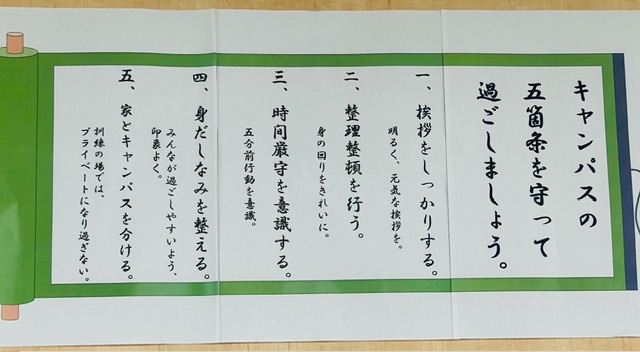 キャンパスの
五箇条を守って
過ごしましょう。
一、挨拶をしっかりする。
明るく、元気な挨拶を。
二、整理整頓を行う。
身の回りをきれいに。
三、時間厳守を意識する。
五分前行動を意識。
四、身だしなみを整える。
みんなが過ごしやすいよう、
印象よく。
五、家とキャンパスを分ける。
訓練の場では、
プライベートになり過ぎない。